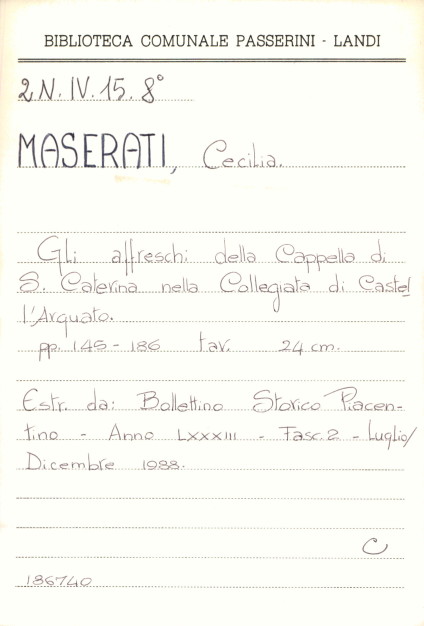 BIBLIOTECA COMUNALE PASSERINI - LANDI
2N.IV.15.8°
MASERATI, Cecilia.
Gli affreschi della Cappella di
S. Caterina nella Collegiata di Castel
l'Arquato.
pp. 145-186 tav. 24 cm.
Estr. da: Bollettino Storico Piacen-
tino - Anno LXXXIII - Fasc. 2 - Luglio/
Dicembre 1988.
C
186740